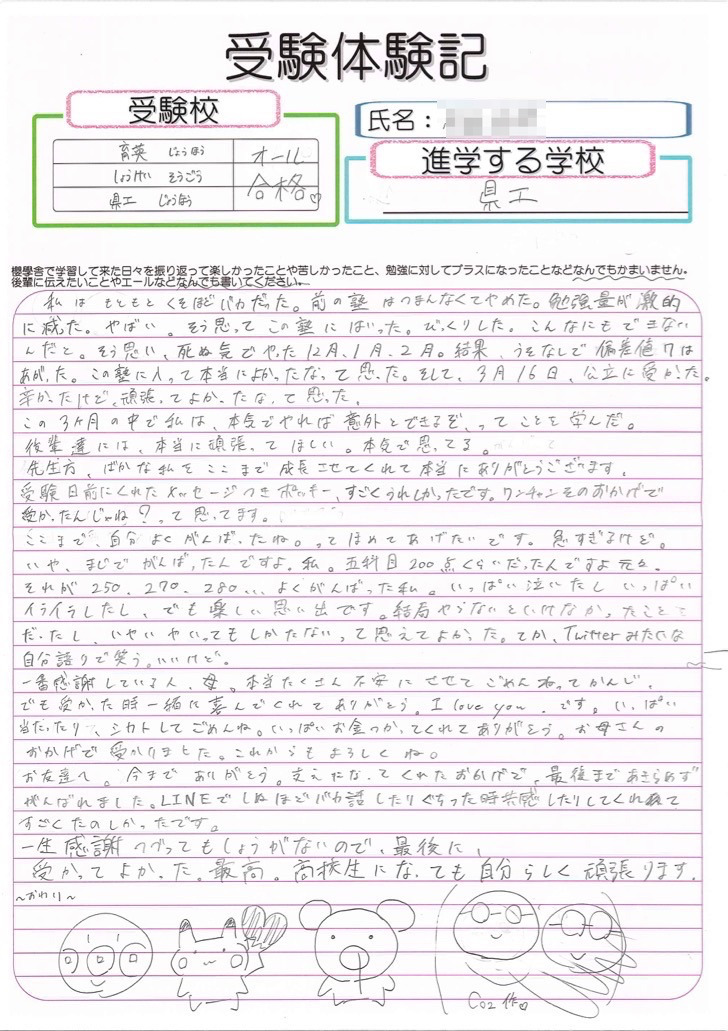 受験体験記
受験校
育英 じょうほう
しょうけい そうごう
県工 じょうほう
オール
合格♡
氏名：
進学する学校
県工
櫻學舎で学習して来た日々を振り返って楽しかったことや苦しかったこと、勉強に対してプラスになったことなどなんでもかまいません。
後輩に伝えたいことやエールなどなんでも書いてください。
私はもともとくそほどバカだった。前の塾はつまんなくてやめた。勉強量が激的
に減った。やばい。そう思ってこの塾にはいった。びっくりした。こんなにもできない
んだと。そう思い、死ぬ気でやった12月、1月、2月。結果、うそなしで偏差値7は
あがった。この塾に入って本当によかったなって思った。そして、3月16日、公立に受かった。
辛かったけど、頑張ってよかったなって思った。
この3ヶ月の中で私は、本気でやれば意外とできるぞ、ってことを学んだ。
後輩達には、本当に頑張ってほしい。本気で思ってる。
先生方、ばかな私をここまで成長させてくれて本当にありがとうございます。
受験日前にくれたメッセージつきポッキー、すごくうれしかったです。ワンチャンそのおかげで
受かったんじゃね？って思ってます。
ここまで、自分よくがんばったね。ってほめてあげたいです。急すぎるけど。
いや、まじでがんばったんですよ、私。五科目200点くらいだったんですよ元々。
それが250、270、280...、よくがんばった私。いっぱい泣いたし いっぱい
イライラしたし、でも楽しい思い出です。結局やらないといけなかったことで
だったし、いやいやいってもしかたないって思えてよかった。てか、Twitterみたいな
自分語りで笑う。いいけど。
一番感謝している人、母。本当たくさん不安にさせてごめんねってかんじ。
でも受かった時一緒に喜んでくれてありがとう。I love you. です。いっぱい
当たったり、シカトしてごめんね。いっぱいお金つかってくれてありがとう。お母さんの
おかげで受かりました。これからもよろしくね。
お友達へ。今までありがとう。支えになってくれたおかげで、最後まであきらめず
がんばれました。LINEでしぬほどバカ話したりぐちった時共感したりしてくれて
すごくたのしかったです。
一生感謝つづってもしょうがないので、最後に、
受かってよかった。最高。高校生になっても自分らしく頑張ります。
～おわり～
Co2 作♡